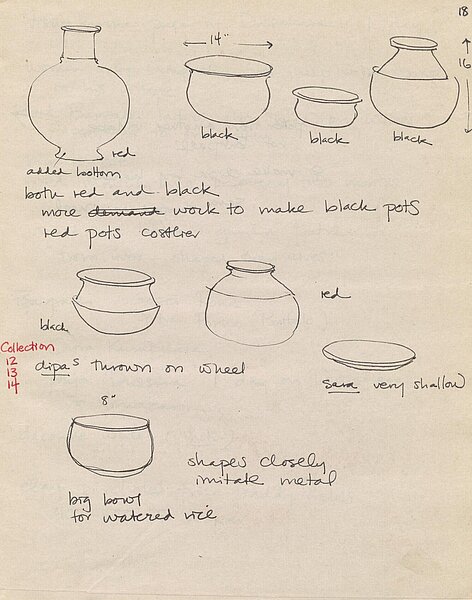 18
14"
16
black
black
black
red
added bottom
both red and black
more demand work to make black pots
red pots costlier
red
black
Collection
12
13
14
dipas thrown on wheel
sara very shallow
8"
shapes closely
imitate metal
big bowl
for watered rice